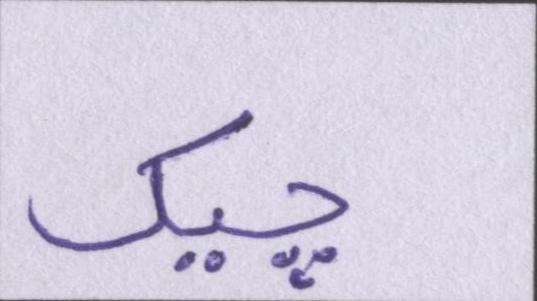 چیک